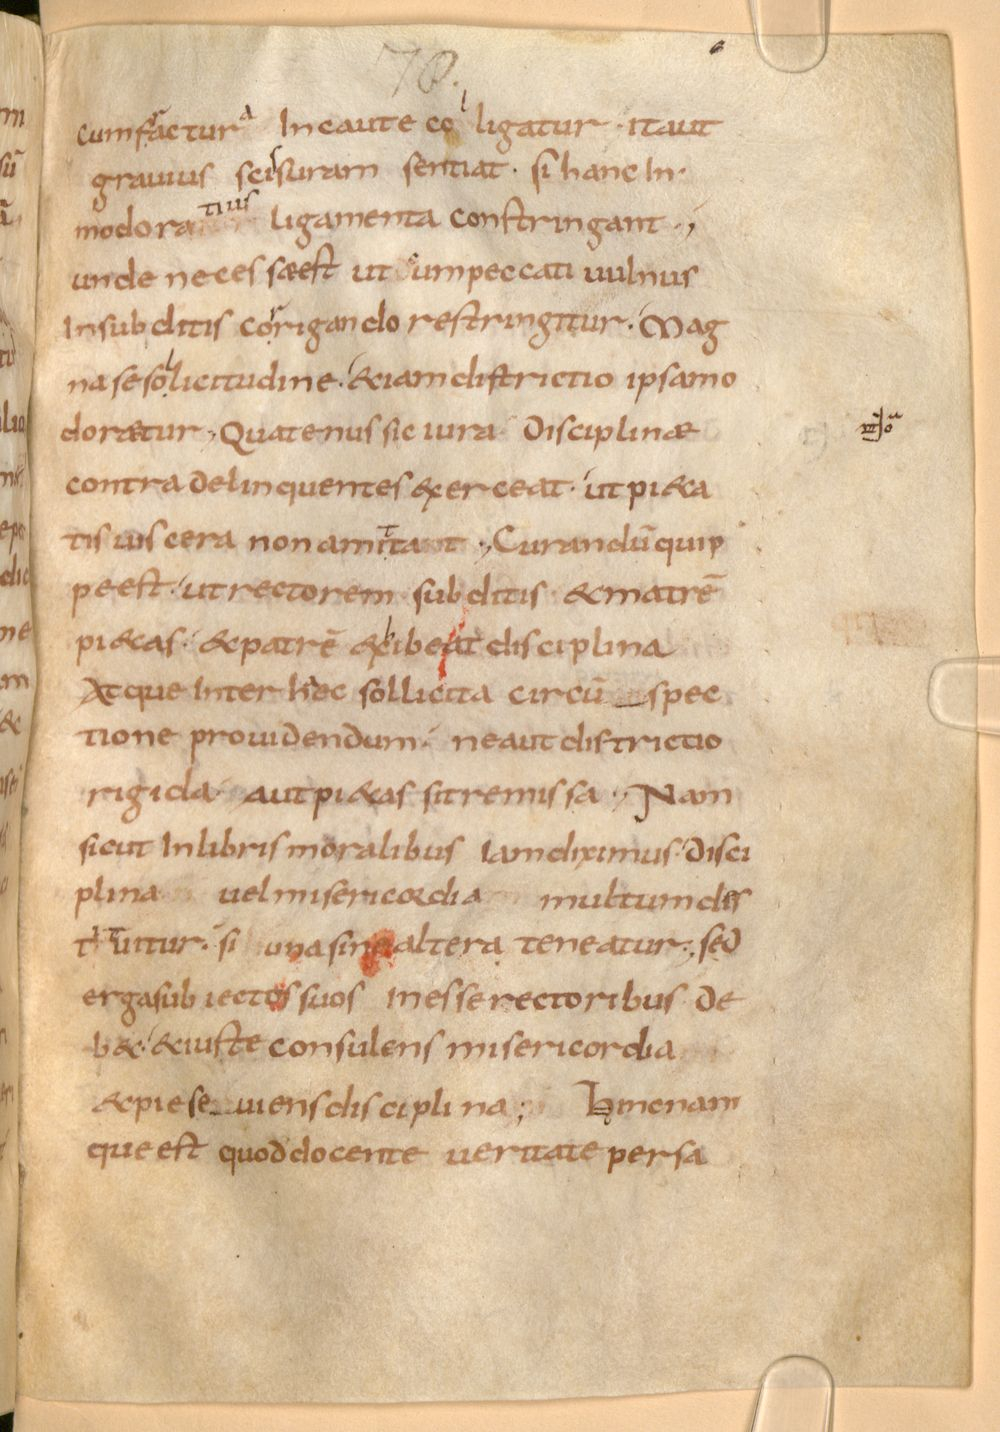 70.
cum fractura Incaute colligatur · ita ut
grauius scissuram sentiat · si hanc In·
moderatius ligamenta constringant ·,
unde necessæ est ut cum peccati uulnus
In subditis corrigando restringitur · Mag
na se sollicitudine · &iam districtio ipsa mo
derætur, Quatenus sic iura Disciplinæ
contra delinquentes &xerceat · ut pi&a
tis uiscera non amittat ·, Curandū quip
pe est · ut rectorem subditis · & matrē
pi&as · & patrē &xhibeat disciplina
Atque Inter hęc sollicita circū spec
tione prouidendum · ne aut districtio
rigida · aut pi&as sit remissa ·, Nam
sicut In libris moralibus Iam diximus · Disci
plina uel misericordia multum des
tituitur · si una sine altera teneatur ·, sed
erga subiectos suos Inesse rectoribus De
b& · & iuste consulens misericordia
& pie seuiens disciplina; Hinc nam
que est quod docente ueritate per sa